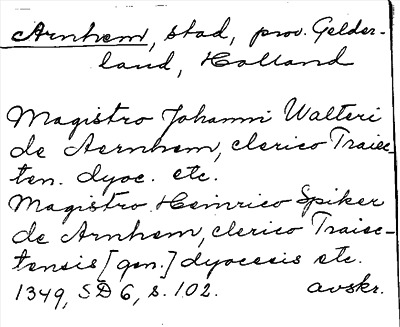 Arnhem, stad, prov. Gelder-
land, Holland
Magistro Johanni Walteri
de Aernhem, clerico Traiec-
ten. dyoc. etc.
Magistro Heinrico Spiker
de Arnhem, clerico Traiec-
tensis [gen.] dyocesis etc.
1349, SD 6, s. 102. avskr.